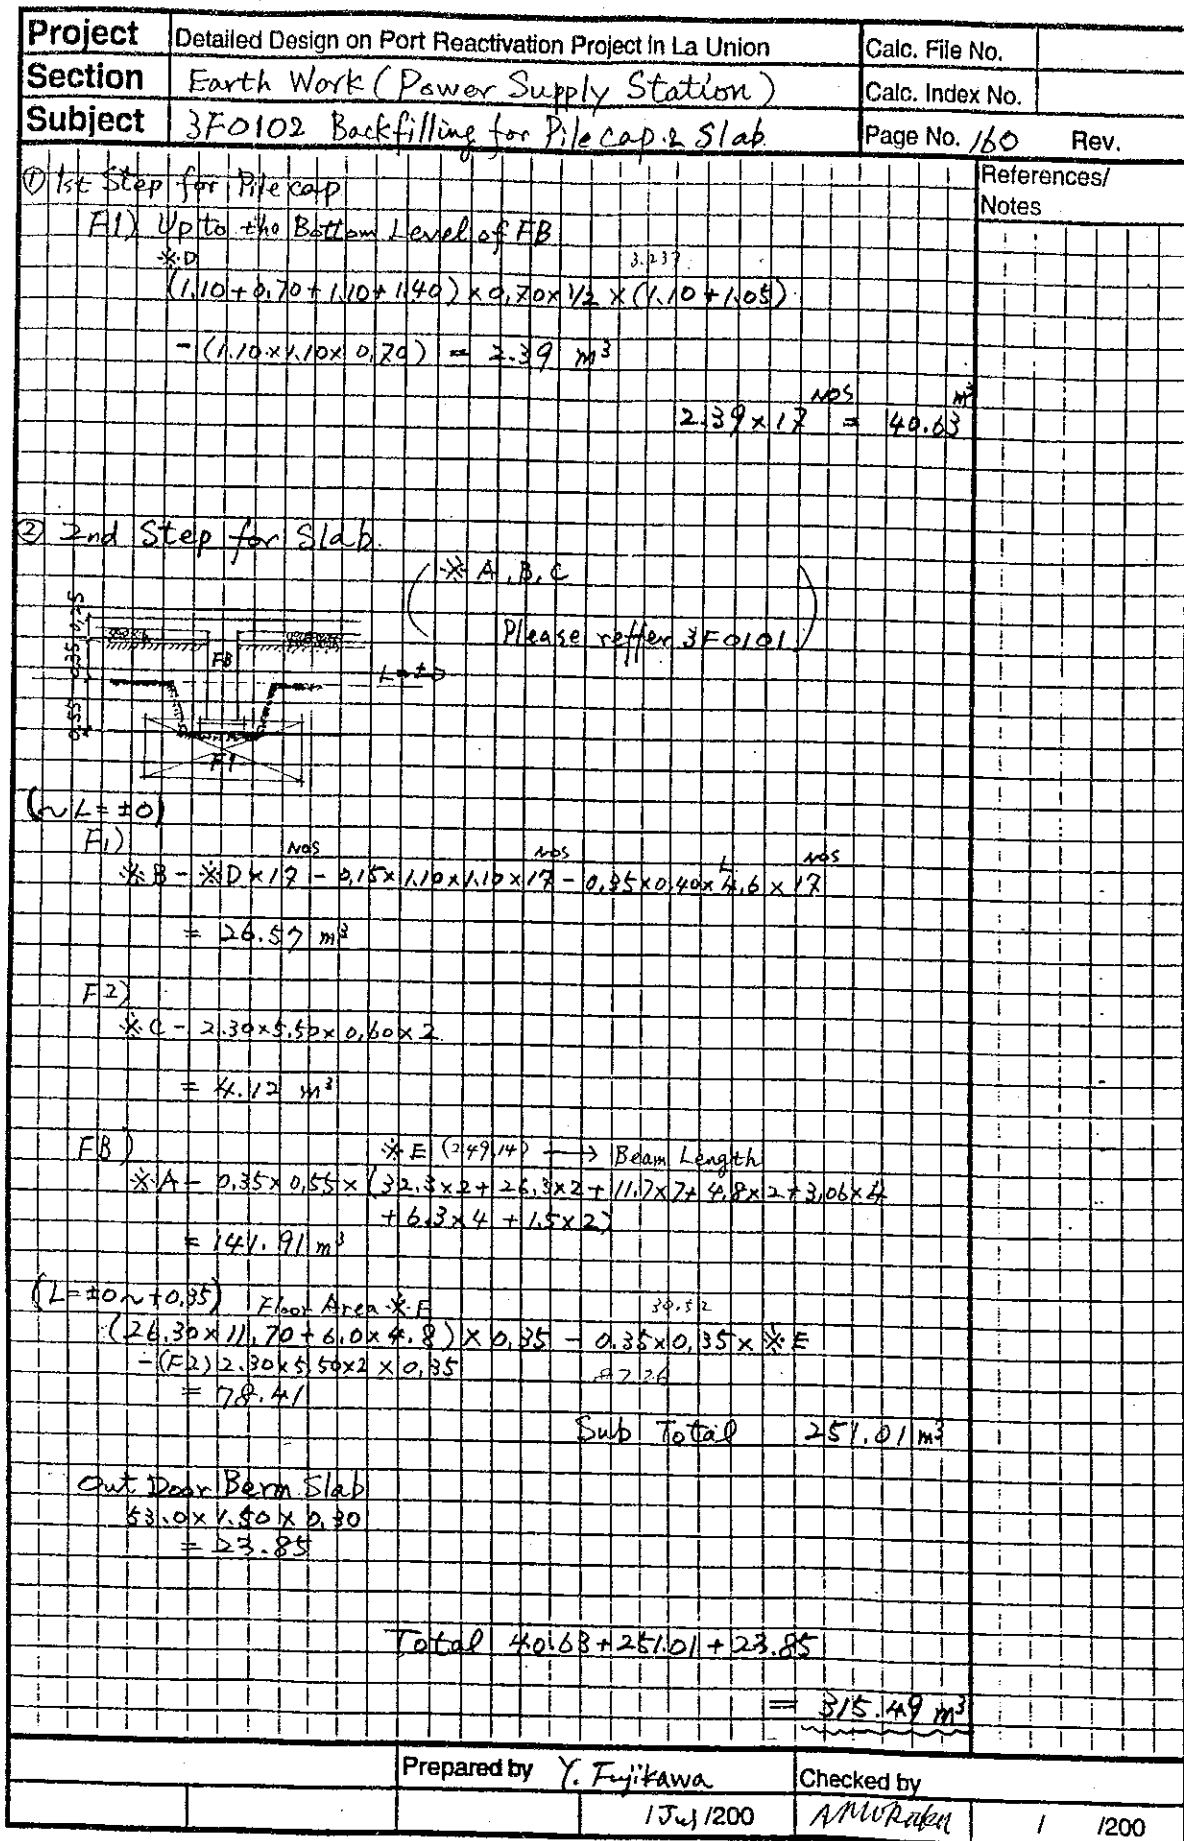 Project Detailed Design on Port Reactivation Project in La Union Calc. File No.
Section Earth Work (Power Supply Station) Calc. Index No.
Subject 3F0102 Backfilling for Pile cap & Slab Page No. 160 Rev.
References/
Notes
① 1st Step for Pile cap
F1) Up to the Bottom Level of FB
※D 3.237
(1.10+0.70+1.10+1.40)×0.70×1/2×(1.10+1.05)
-(1.10×1.10×0.70) = 2.39 m³
NOS m³
2.39×17 = 40.63
② 2nd Step for Slab
※ A, B, C
Please reffer 3F0101
0.25
0.35
0.55
FB
L=±0
F1
(~L=±0)
F1)
NOS NOS L NOS
※B - ※D×17 - 0.15×1.10×1.10×17 - 0.35×0.40×4.6×17
= 26.57 m³
F2)
※C - 2.30×5.50×0.60×2
= 4.12 m³
FB) ※E (249.14) → Beam Length
※A - 0.35×0.55×(32.3×2+26.3×2+11.7×7+4.8×2+3.06×4
+6.3×4+1.5×2)
= 141.91 m³
(L=±0~+0.35) Floor Area ※F 30.52
(26.30×11.70+6.0×4.8)×0.35 - 0.35×0.35×※E
-(F2) 2.30×5.50×2×0.35
= 78.41
Sub Total 251.01 m³
Out Door Berm Slab
53.0×1.50×0.30
= 23.85
Total 40.63+251.01+23.85
= 315.49 m³
Prepared by Y. Fujikawa Checked by
1 Jul /200 / /200